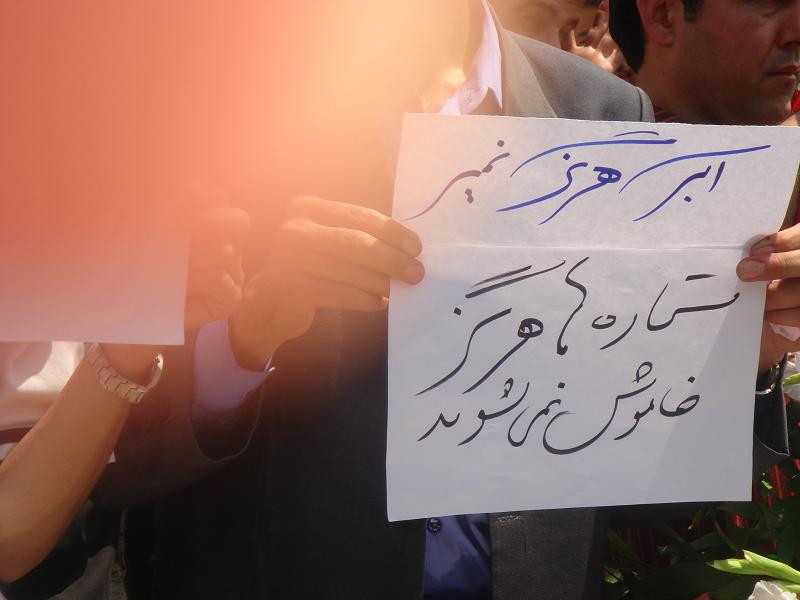 اکبر هرگز نمیر
ستاره ها هرگز
خاموش نمی شوند